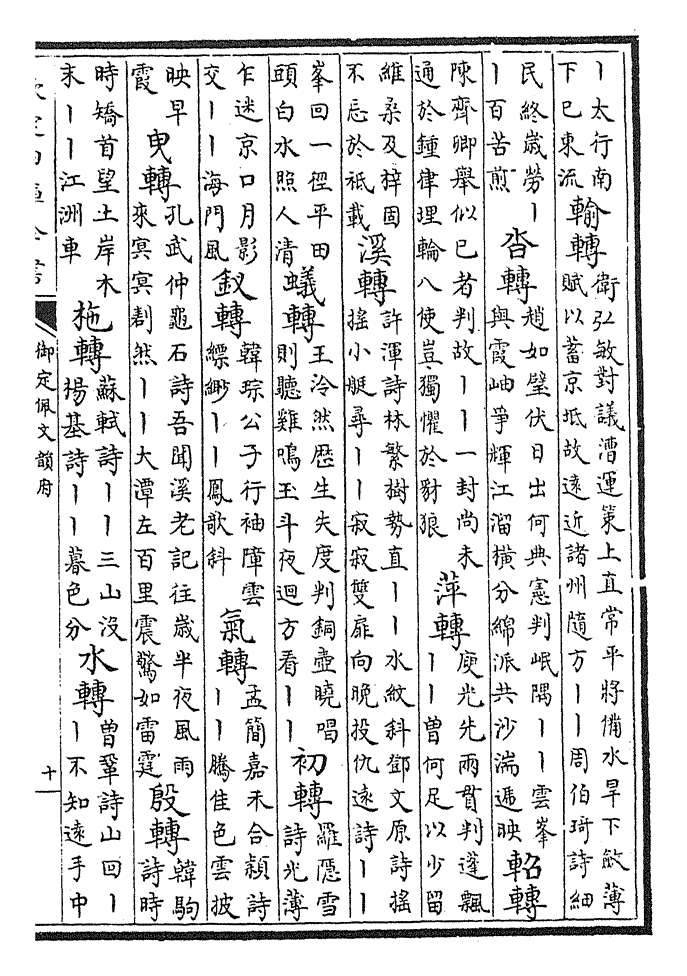 丨太行南
下已東流
輸轉
衛弘敏對議漕運策上直常平將備水旱下斂薄
賦以蓄京坻故遠近諸州隨方丨丨周伯琦詩細
民終歲勞丨
丨百苦煎
沓轉
趙如璧伏日出何典憲判岷隅丨丨雲峯
與霞岫爭輝江溜橫分綿派共沙湍遞映
軺轉
陳齊卿舉似已者判故丨丨一封尚未
通於鍾律理輪八使豈獨懼於豺狼
萍轉
庾光先兩貫判蓬飄
丨丨曽何足以少留
維桑及梓固
不忘於祗載
溪轉
許渾詩林繁樹勢直丨丨水紋斜鄧文原詩搖
搖小艇尋丨丨寂寂雙扉向晚投仇遠詩丨丨
峯回一徑平田
頭白水照人清
蟻轉
王泠然厯生失度判銅壺曉唱
則聽雞鳴玉斗夜迴方看丨丨
初轉
羅隱雪
詩光薄
乍迷京口月影
交丨丨海門風
釵轉
韓琮公子行袖障雲
縹緲丨丨鳳歌斜
氣轉
孟簡嘉禾合穎詩
丨丨騰佳色雲披
映早
霞
曳轉
孔武仲黿石詩吾聞溪老記往歲半夜風雨
來冥冥劃然丨丨大潭左百里震驚如雷霆
殷轉
韓駒
詩時
時矯首望土岸木
末丨丨江洲車
柂轉
蘇軾詩丨丨三山沒
揚基詩丨丨暮色分
水轉
曽鞏詩山回丨
丨不知遠手中
欽定四庫全書
御定佩文韻府
十